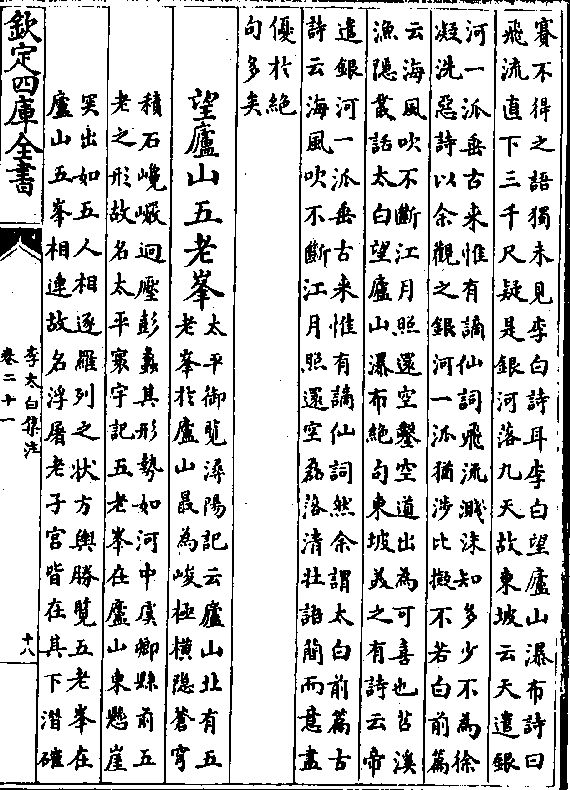 賽不得之語獨未見李白詩耳李白望廬山瀑布詩曰
飛流直下三千尺疑是銀河落九天故東坡云天遣銀
河一派垂古来惟有謫仙詞飛流濺沫知多少不為徐
凝洗惡詩以余觀之銀河一派猶涉比擬不若白前篇
云海風吹不斷江月照還空鑿空道出為可喜也苕溪
漁隱叢話太白望廬山瀑布絶句東坡美之有詩云帝
遣銀河一派垂古来惟有謫仙詞然余謂太白前篇古
詩云海風吹不斷江月照還空磊落清壯語簡而意盡
優於絶
句多矣
望廬山五老峯
太平御覽潯陽記云廬山北有五
老峯於廬山最為峻極横隱蒼穹
積石巉巗迥壓彭蠡其形勢如河中虞鄉縣前五
老之形故名太平寰宇記五老峯在廬山東懸崖
突出如五人相逐羅列之狀方輿勝覽五老峯在
廬山五峯相連故名浮屠老子宮皆在其下潛確
欽定四庫全書
李太白集注
卷二十一
十八